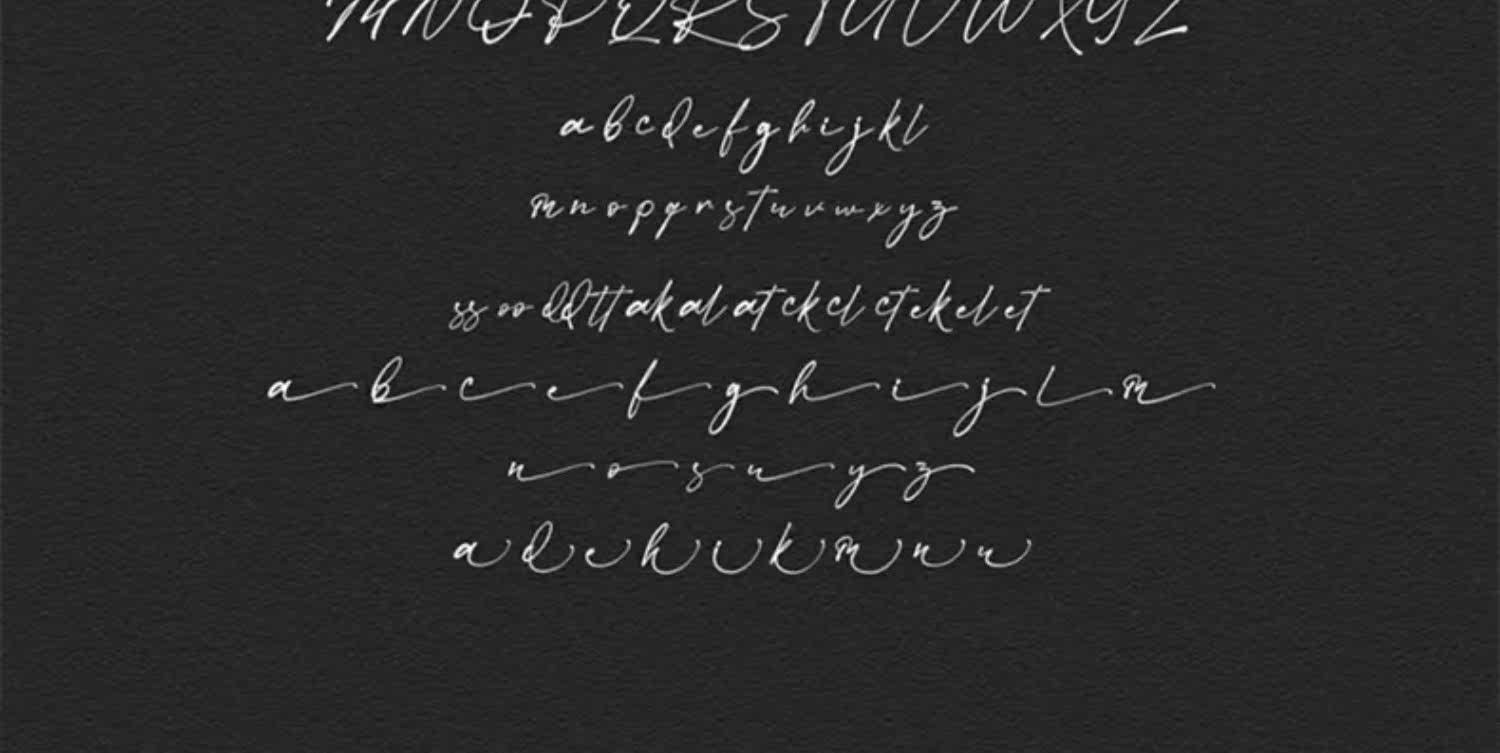 MNOPQRSTUVWXYZ
abcdefghijkl
mnopqrstuvwxyz
ss oo dd tt ak al at ck cl ct ek el et
a b c e f g h i j l m
n o s u y z
a d e h i k m n u